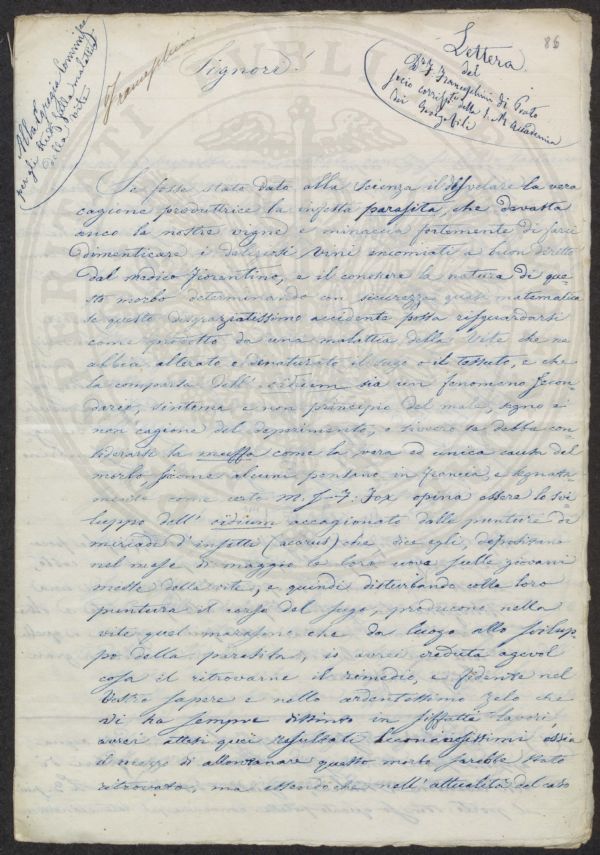 86
Lettera
del
Dr. J. Franceschini di Prato
socio corrispte della I. R. Accademia
dei Georgofili
Alla Egregia Commissne
per gli studj sulla malattia
della vite
Franceschini
Signore!
Se fosse stato dato alla scienza il disvelare la vera
cagione produttrice la infesta parasita, che devasta
anco le nostre vigne e minaccia fortemente di farci
dimenticare i deligiosi vini encomiati a buon diretto
dal medico Fiorentino, e il conoscere la natura di que-
sto morbo determinando con sicurezza quasi matematica
se questo disgraziatissimo accidente possa risguardarsi
come prodotto da una malattia della vite che ne
abbia alterato e denaturato il sugo o il tessuto, e che
la comparsa dell' oidium sia un fenomeno secon
dario, sintoma e non principio del male, segno e
non cagione del deperimento, o sivvero se debba con-
siderarsi la muffa come la vera ed unica causa del
morbo siccome alcuni pensano in Francia, e segnata-
mente come certo M. J-F. Fox opina essere lo svi-
luppo dell' oidium accagionato dalle punture di
miriade d'insetti (acarus) che dice egli, depositano
nel mese di maggio le loro uova sulle giovani
messe della vite, e quindi disturbando colla loro
puntura il corso del sugo, producono nella
vite quel marasmo che da luogo allo svilup-
po della parasita, io avrei creduta agevol
cosa il ritrovarne il rimedio, e fidente nel
vostro sapere e nello ardentissimo zelo che
vi ha sempre distinto in siffatti lavori,
avrei attesi quei resultati economicissimi ossia
il mezzo di allontanare questo morbo sarebbe stato
ritrovato; ma essendochè nell'attualità del caso